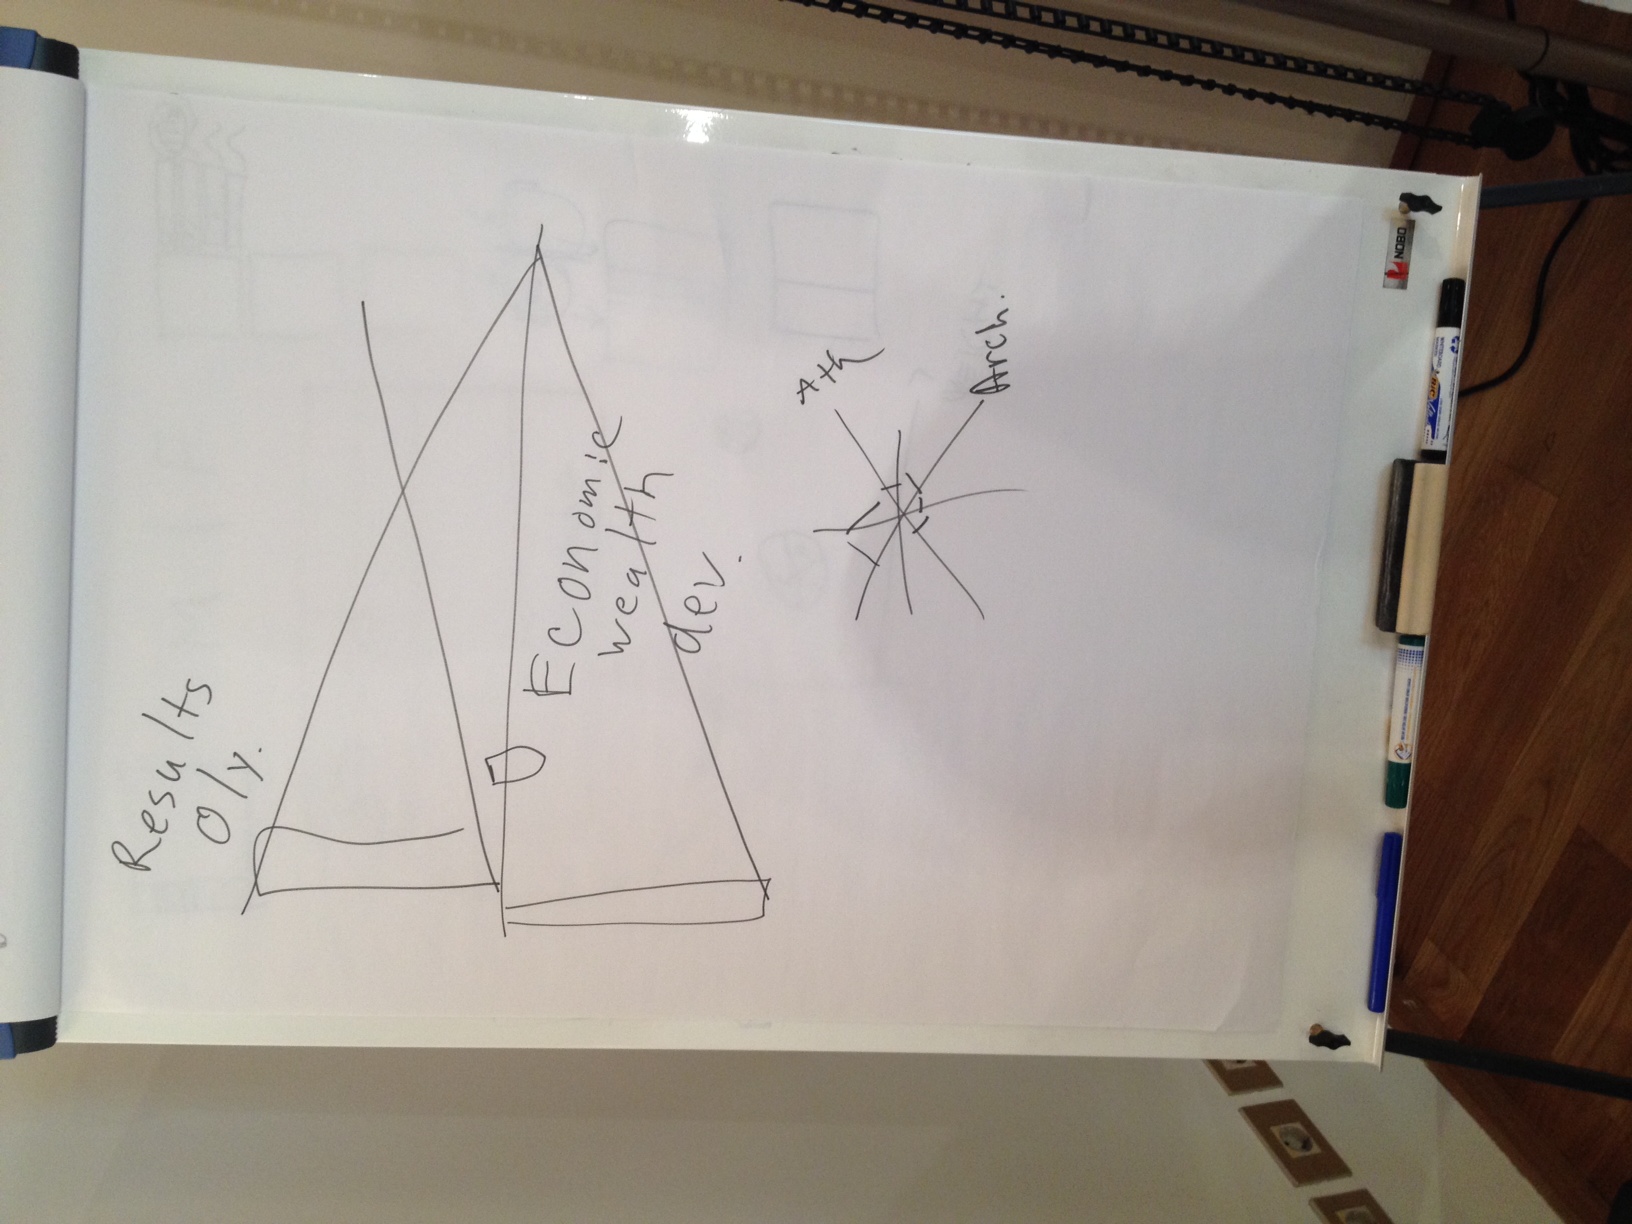 Results
Oly.
Economic
wealth
dev.
Ath
Arch.
NOBO